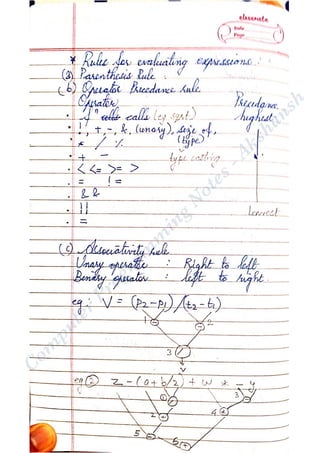 classmate
Date
Page
* Rules for evaluating expressions :
(a) Parenthesis Rule :
(b) Operator Precedance rule
Operator Precedance
. f^n calls (eg sqrt) highest
. ! , + , - , & , (unary), size of,
(type)
. * / %
. + - type casting
. < <= > >
. = ! =
. & &
. || lowest
. =
(c) Associativity rule
Unary operator : Right to left
Binary operator : left to right.
eg : V = (p2 - p1) / (t2 - t1)
1 - - 2
3 /
V
eg : z - (a + b/2) + w * - y
1 / 3 -
2 + 4 *
5 - 6 +
Computer Programming Notes -